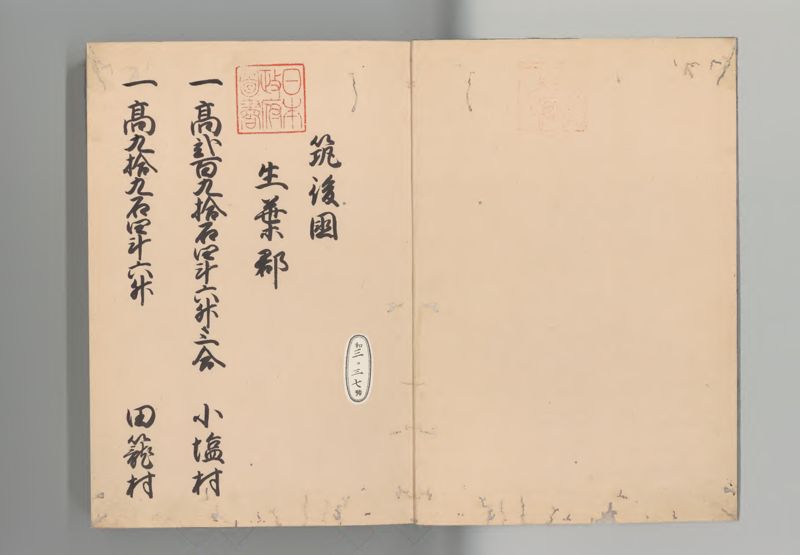 日本
政府
図書
筑後國
生葉郡
一高弐百九拾石四斗六升三合 小塩村
一高九拾九石四斗六升 田籠村
和三一三七號